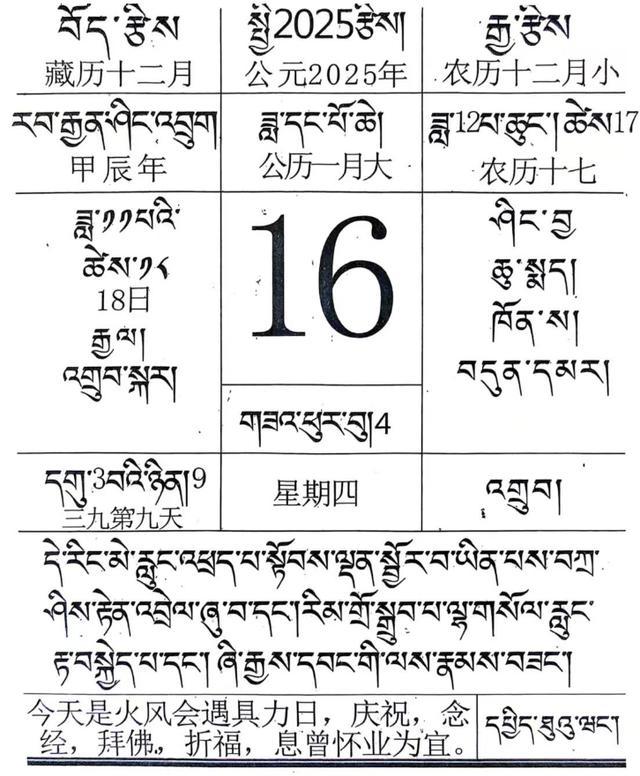 བོད་རྩིས
藏历十二月
སྤྱི2025རྩིས།
公元2025年
རྒྱ་རྩིས
农历十二月小
རབ་རྒྱན་ཤིང་འབྲུག
甲辰年
ཟླ་དང་པོ་ཆེ།
公历一月大
ཟླ་12པ་ཆུང་། ཚེས17
农历十七
ཟླ་༡༡པའི་
ཚེས་༡༨
18日
རྒྱལ།
འགྲུབ་སྐར།
16
གཟའ་ཕུར་བུ།4
ཤིང་བྱ
ཆུ་སྨད།
ཁོན་ས།
བདུན་དམར།
དགུ་3བའི་ཉིན།9
三九第九天
星期四
འགྲུབ།
དེ་རིང་མེ་རླུང་འཕྲད་པ་སྟོབས་ལྡན་སྦྱོར་བ་ཡིན་པས་བཀྲ་
ཤིས་རྟེན་འབྲེལ་ཞུ་བ་དང་།རིམ་གྲོ་སྒྲུབ་པ་ལྷ་གསོལ་རླུང་
རྟ་བསྐྱེད་པ་དང་། ཞི་རྒྱས་དབང་གི་ལས་རྣམས་བཟང་།
今天是火风会遇具力日，庆祝，念
经，拜佛，折福，息曾怀业为宜。
དཔྱིད་ཐུའུ་ལང་།